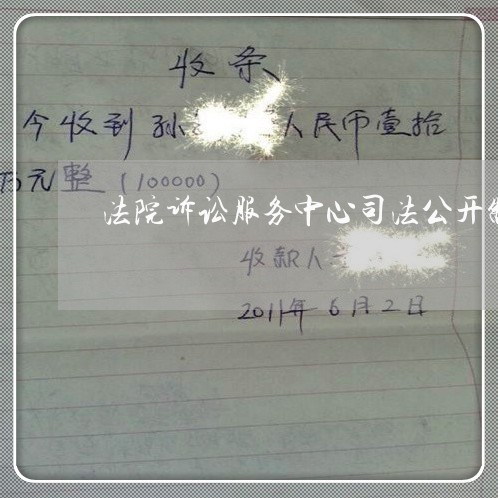 收条
今收到孙 人民币壹拾
万元整(100000)
法院诉讼服务中心司法公开
收款人
2011年6月2日